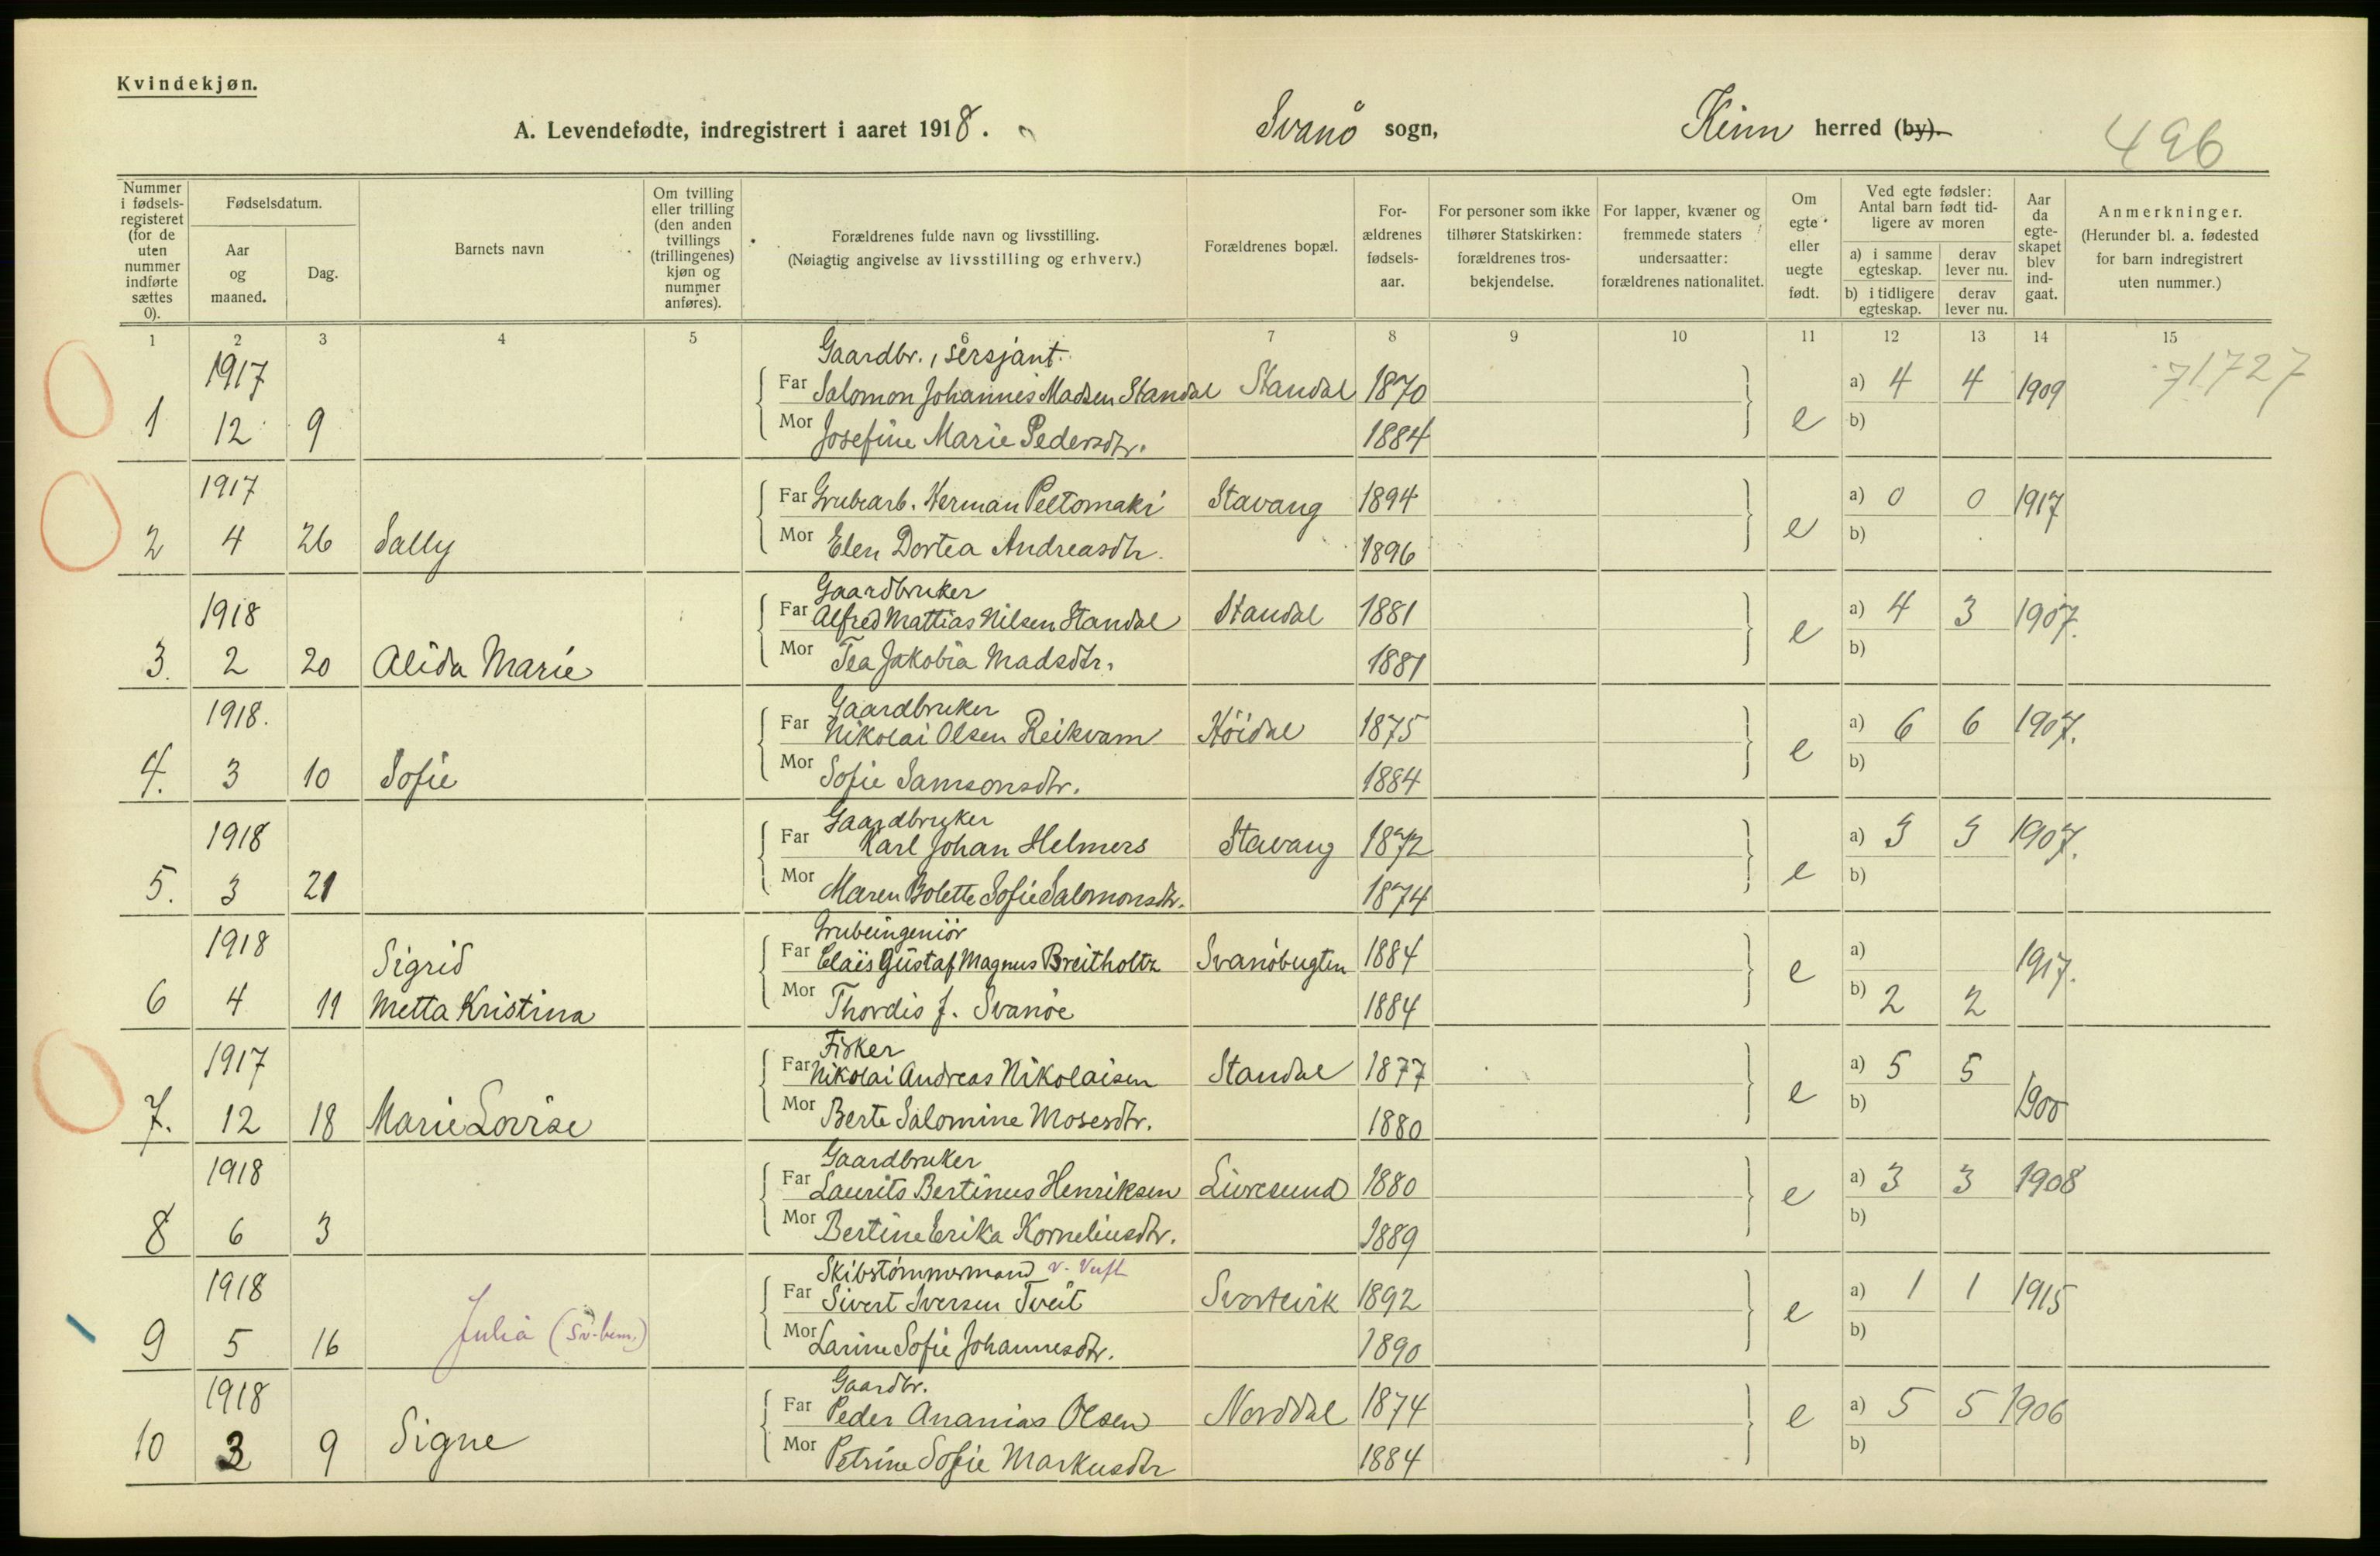 Kvindekjøn.
A. Levendefødte, indregistrert i aaret 1918. Svanø sogn, Kinn herred (by). 496
Nummer i fødsels-registeret (for de uten nummer indførte sættes 0).
Fødselsdatum.
Aar og maaned.
Dag.
Barnets navn
Om tvilling eller trilling (den anden tvillings (trillingenes) kjøn og nummer anføres).
Forældrenes fulde navn og livsstilling.
(Nøiagtig angivelse av livsstilling og erhverv.)
Forældrenes bopæl.
For-ældrenes fødsels-aar.
For personer som ikke tilhører Statskirken: forældrenes tros-bekjendelse.
For lapper, kvæner og fremmede staters undersaatter: forældrenes nationalitet.
Om egte eller uegte født.
Ved egte fødsler: Antal barn født tid-ligere av moren
a) i samme egteskap. derav lever nu.
b) i tidligere egteskap. derav lever nu.
Aar da egte-skapet blev ind-gaat.
Anmerkninger.
(Herunder bl. a. fødested for barn indregistrert uten nummer.)
1 2 3 4 5 6 7 8 9 10 11 12 13 14 15
1917 Gaardbr., sersjant. 71727
Far Salomon Johannes Madsen Standal Standal 1870 a) 4 4 1909
1 12 9 Mor Josefine Marie Pedersdtr. 1884 e b)
1917 Far Grubearb. Herman Peltomaki Stavang 1894 a) 0 0 1917
2 4 26 Sally Mor Elen Dortea Andreasdtr. 1896 e b)
1918 Gaardbruker
Far Alfred Mattias Nilsen Standal Standal 1881 a) 4 3 1907.
3. 2 20 Alida Marie Mor Tea Jakobia Madsdtr. 1881 e b)
1918. Gaardbruker
Far Nikolai Olsen Reikvam Høidal 1875 a) 6 6 1907.
4. 3 10 Sofie Mor Sofie Samsonsdtr. 1884 e b)
1918 Gaardbruker
Far Karl Johan Helmers Stavang 1872 a) 3 3 1907.
5. 3 21 Mor Maren Bolette Sofie Salomonsdtr. 1874 e b)
1918 Grubeingeniör
Sigrid Far Claës Gustaf Magnus Breitholtz Svanøbugten 1884 a) 1917.
6 4 11 Metta Kristina Mor Thordis f. Svanøe 1884 e b) 2 2
1917 Fisker
Far Nikolai Andreas Nikolaisen Standal 1877 a) 5 5 1900
7. 12 18 Marie Lovise Mor Berte Salomine Mosesdtr. 1880 e b)
1918 Gaardbruker
Far Laurits Bertinus Henriksen Liuresund 1880 a) 3 3 1908
8 6 3 Mor Bertine Erika Korneliusdtr. 1889 e b)
1918 Skibstømmermand v. Verft
Far Sivert Iversen Tveit Svortevik 1892 a) 1 1 1915
9 5 16 Julia Mor Larine Sofie Johannesdtr. 1890 e b)
1918 Gaardbr.
Far Peder Ananias Olsen Norddal 1874 a) 5 5 1906
10 3 9 Signe Mor Petrine Sofie Markusdtr 1884 e b)